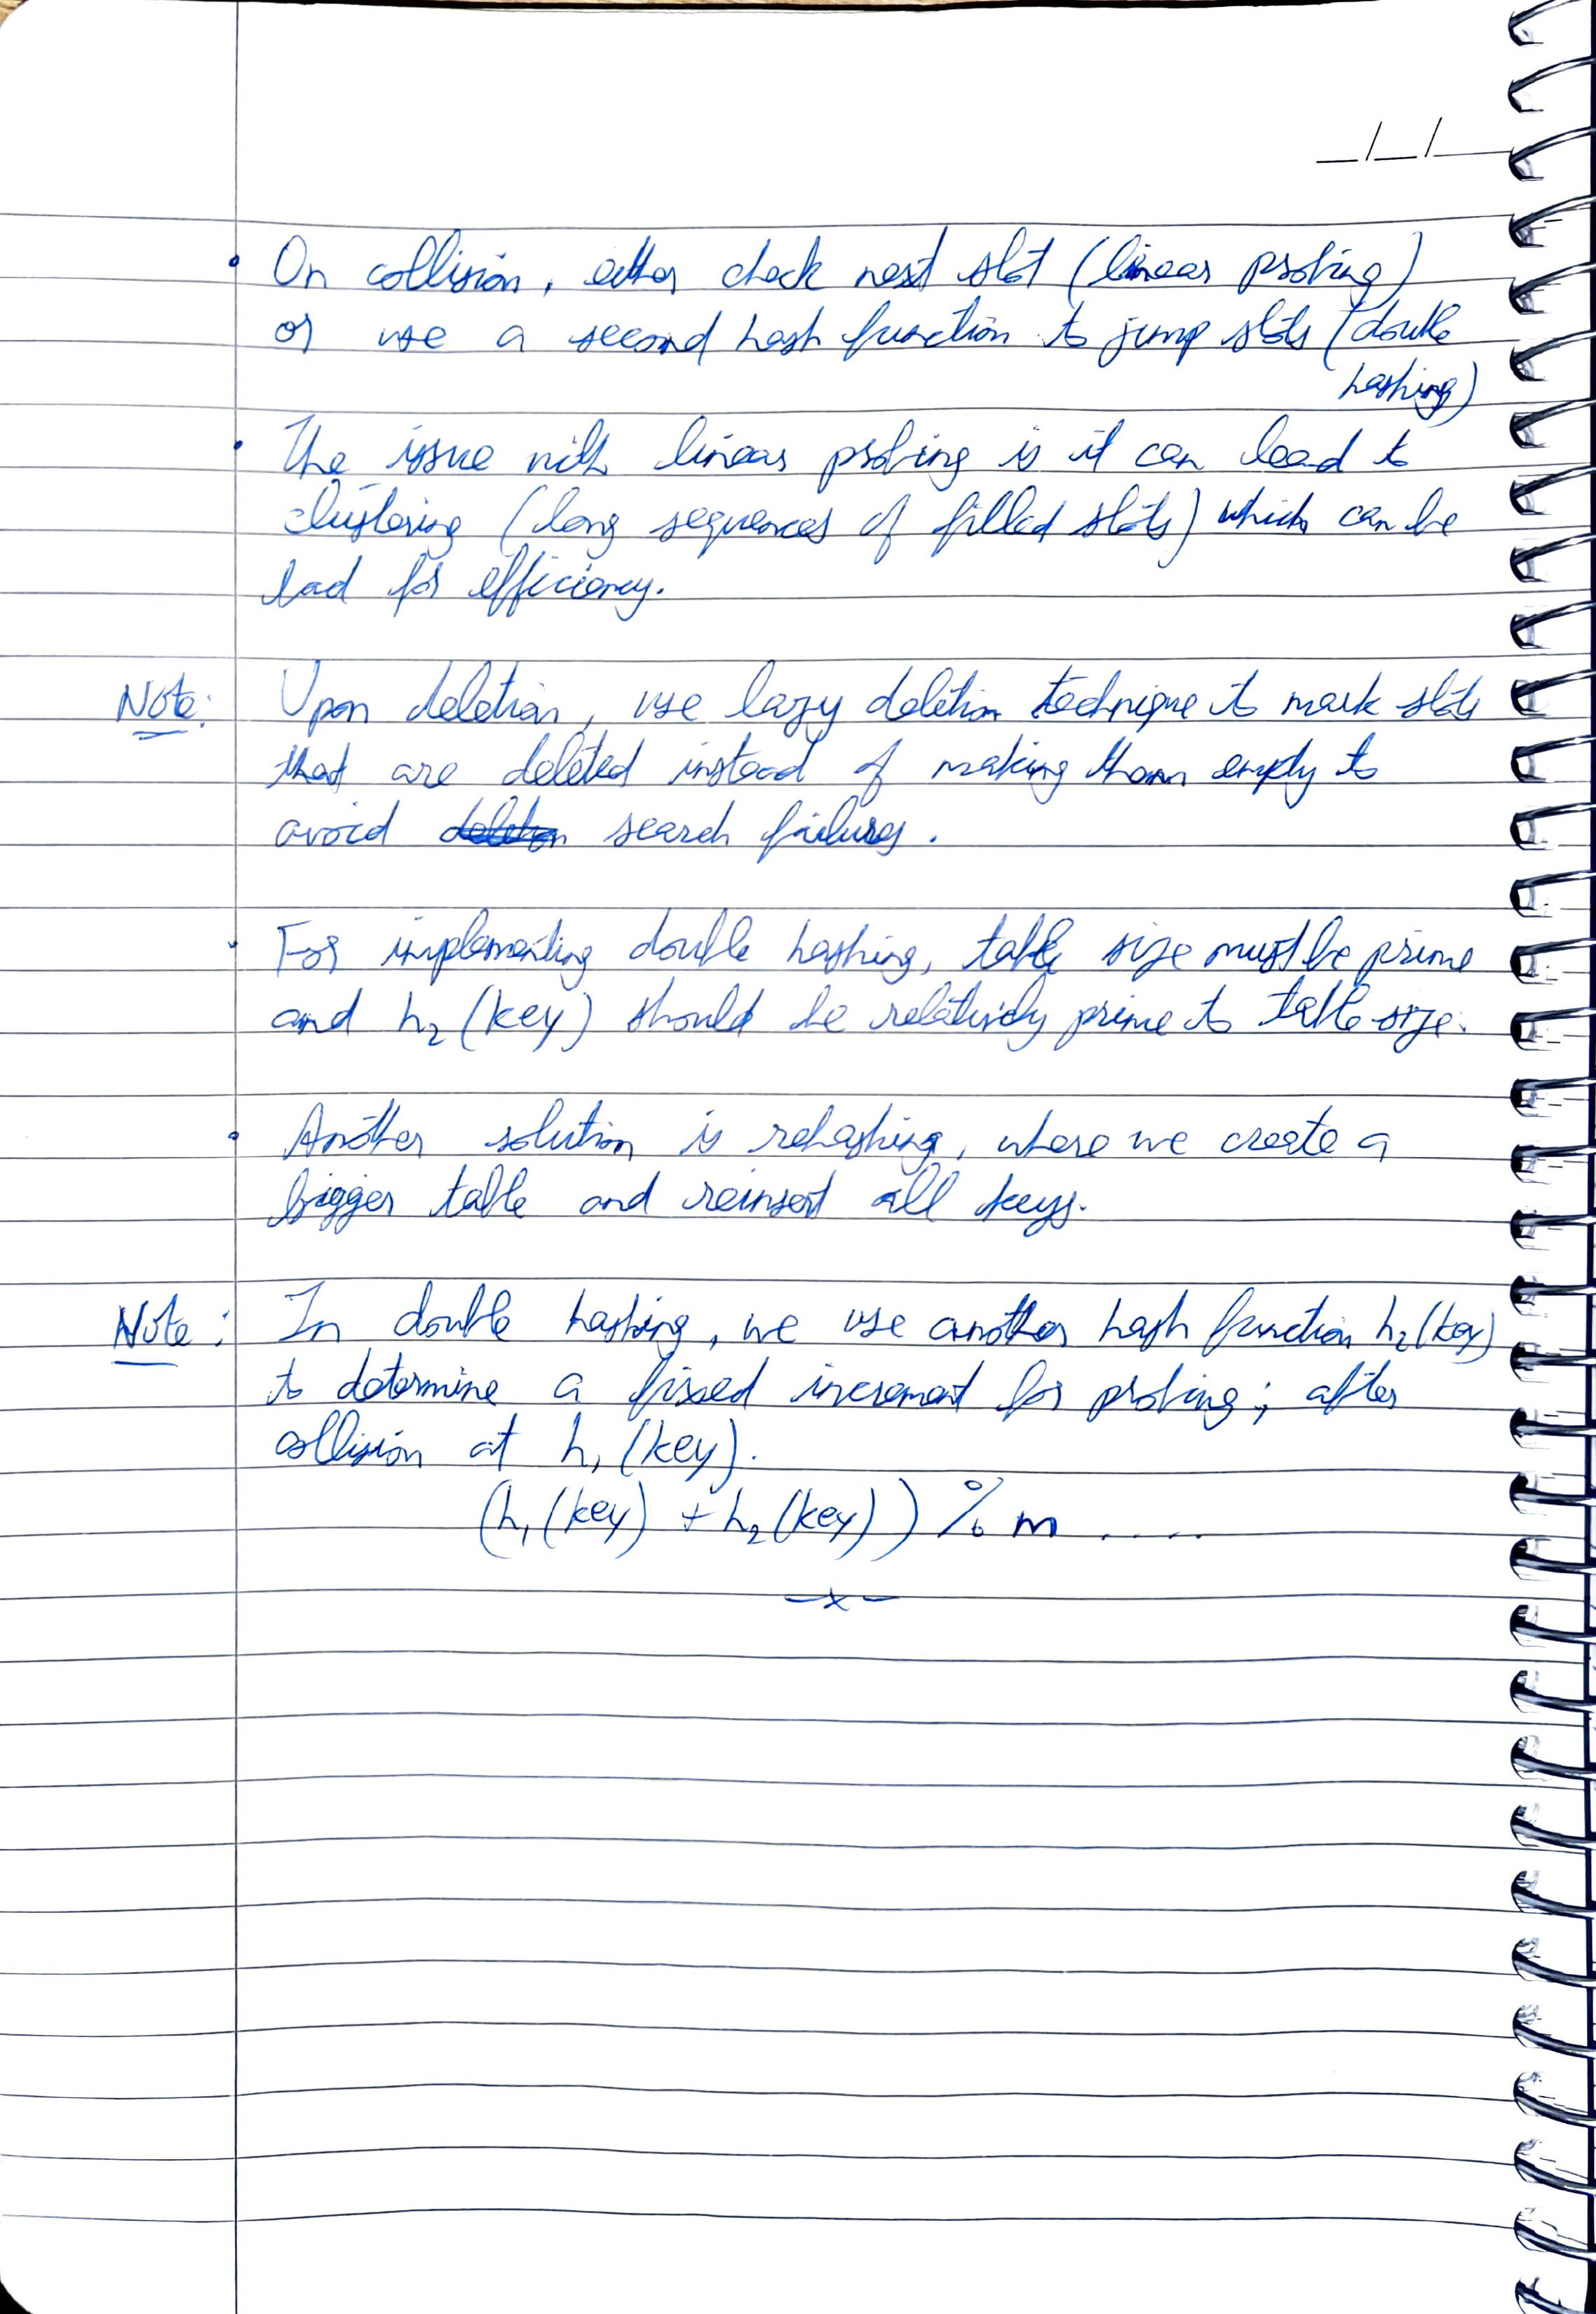 _/_/_
• On collision, either check next slot (linear probing)
or use a second hash function to jump slots (double
hashing)
• The issue with linear probing is it can lead to
clustering (long sequences of filled slots) which can be
bad for efficiency.
Note: Upon deletion, use lazy deletion technique to mark slots
that are deleted instead of making them empty to
avoid search failures.
• For implementing double hashing, table size must be prime
and h₂(key) should be relatively prime to table size.
• Another solution is rehashing, where we create a
bigger table and reinsert all keys.
Note: In double hashing, we use another hash function h₂(key)
to determine a fixed increment for probing; after
collision at h₁(key).
(h₁(key) + h₂(key)) % m .....
—x—